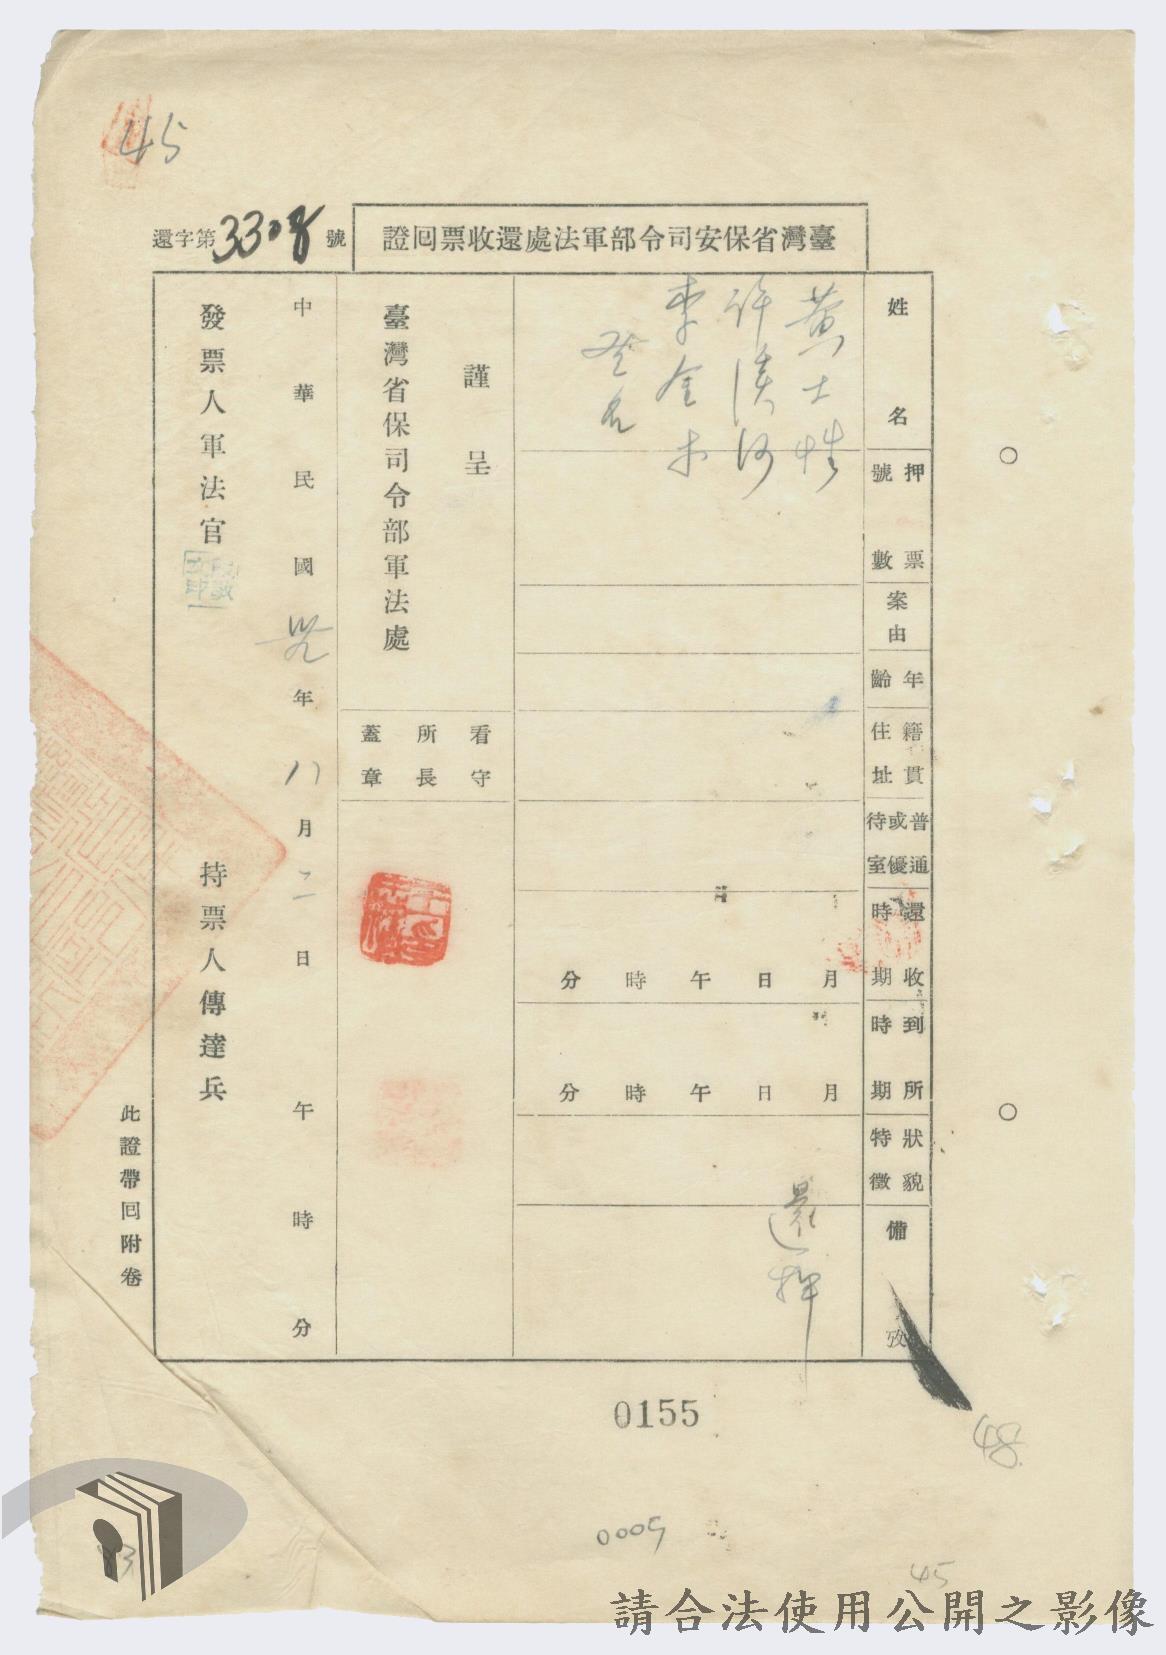 45
臺灣省保安司令部軍法處還收票回證
還字第3308號
姓名
押票號數
案由
年齡
籍貫住址
普通或優待室
還收時期
到所時期
狀貌特徵
備攷
黃士性
許漢
李金木
叁名
月日午時分
月日午時分
還押
謹呈
臺灣省保司令部軍法處
看守所長蓋章
中華民國卅九年八月二日午時分
發票人軍法官
持票人傳達兵
此證帶回附卷
0155
48
0005
45
請合法使用公開之影像